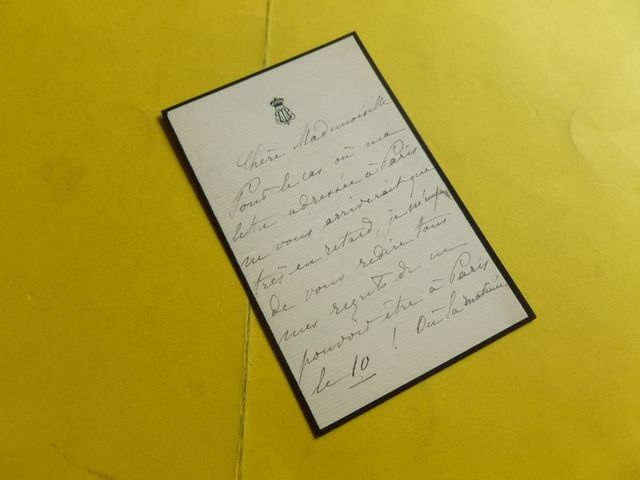 Chère Mademoiselle
Pour le cas où ma
lettre adressée à Paris
ne vous arriverait que
très en retard, je m'empresse
de vous redire tous
mes regrets de ne
pouvoir être à Paris
le 10 ! Où la matinée